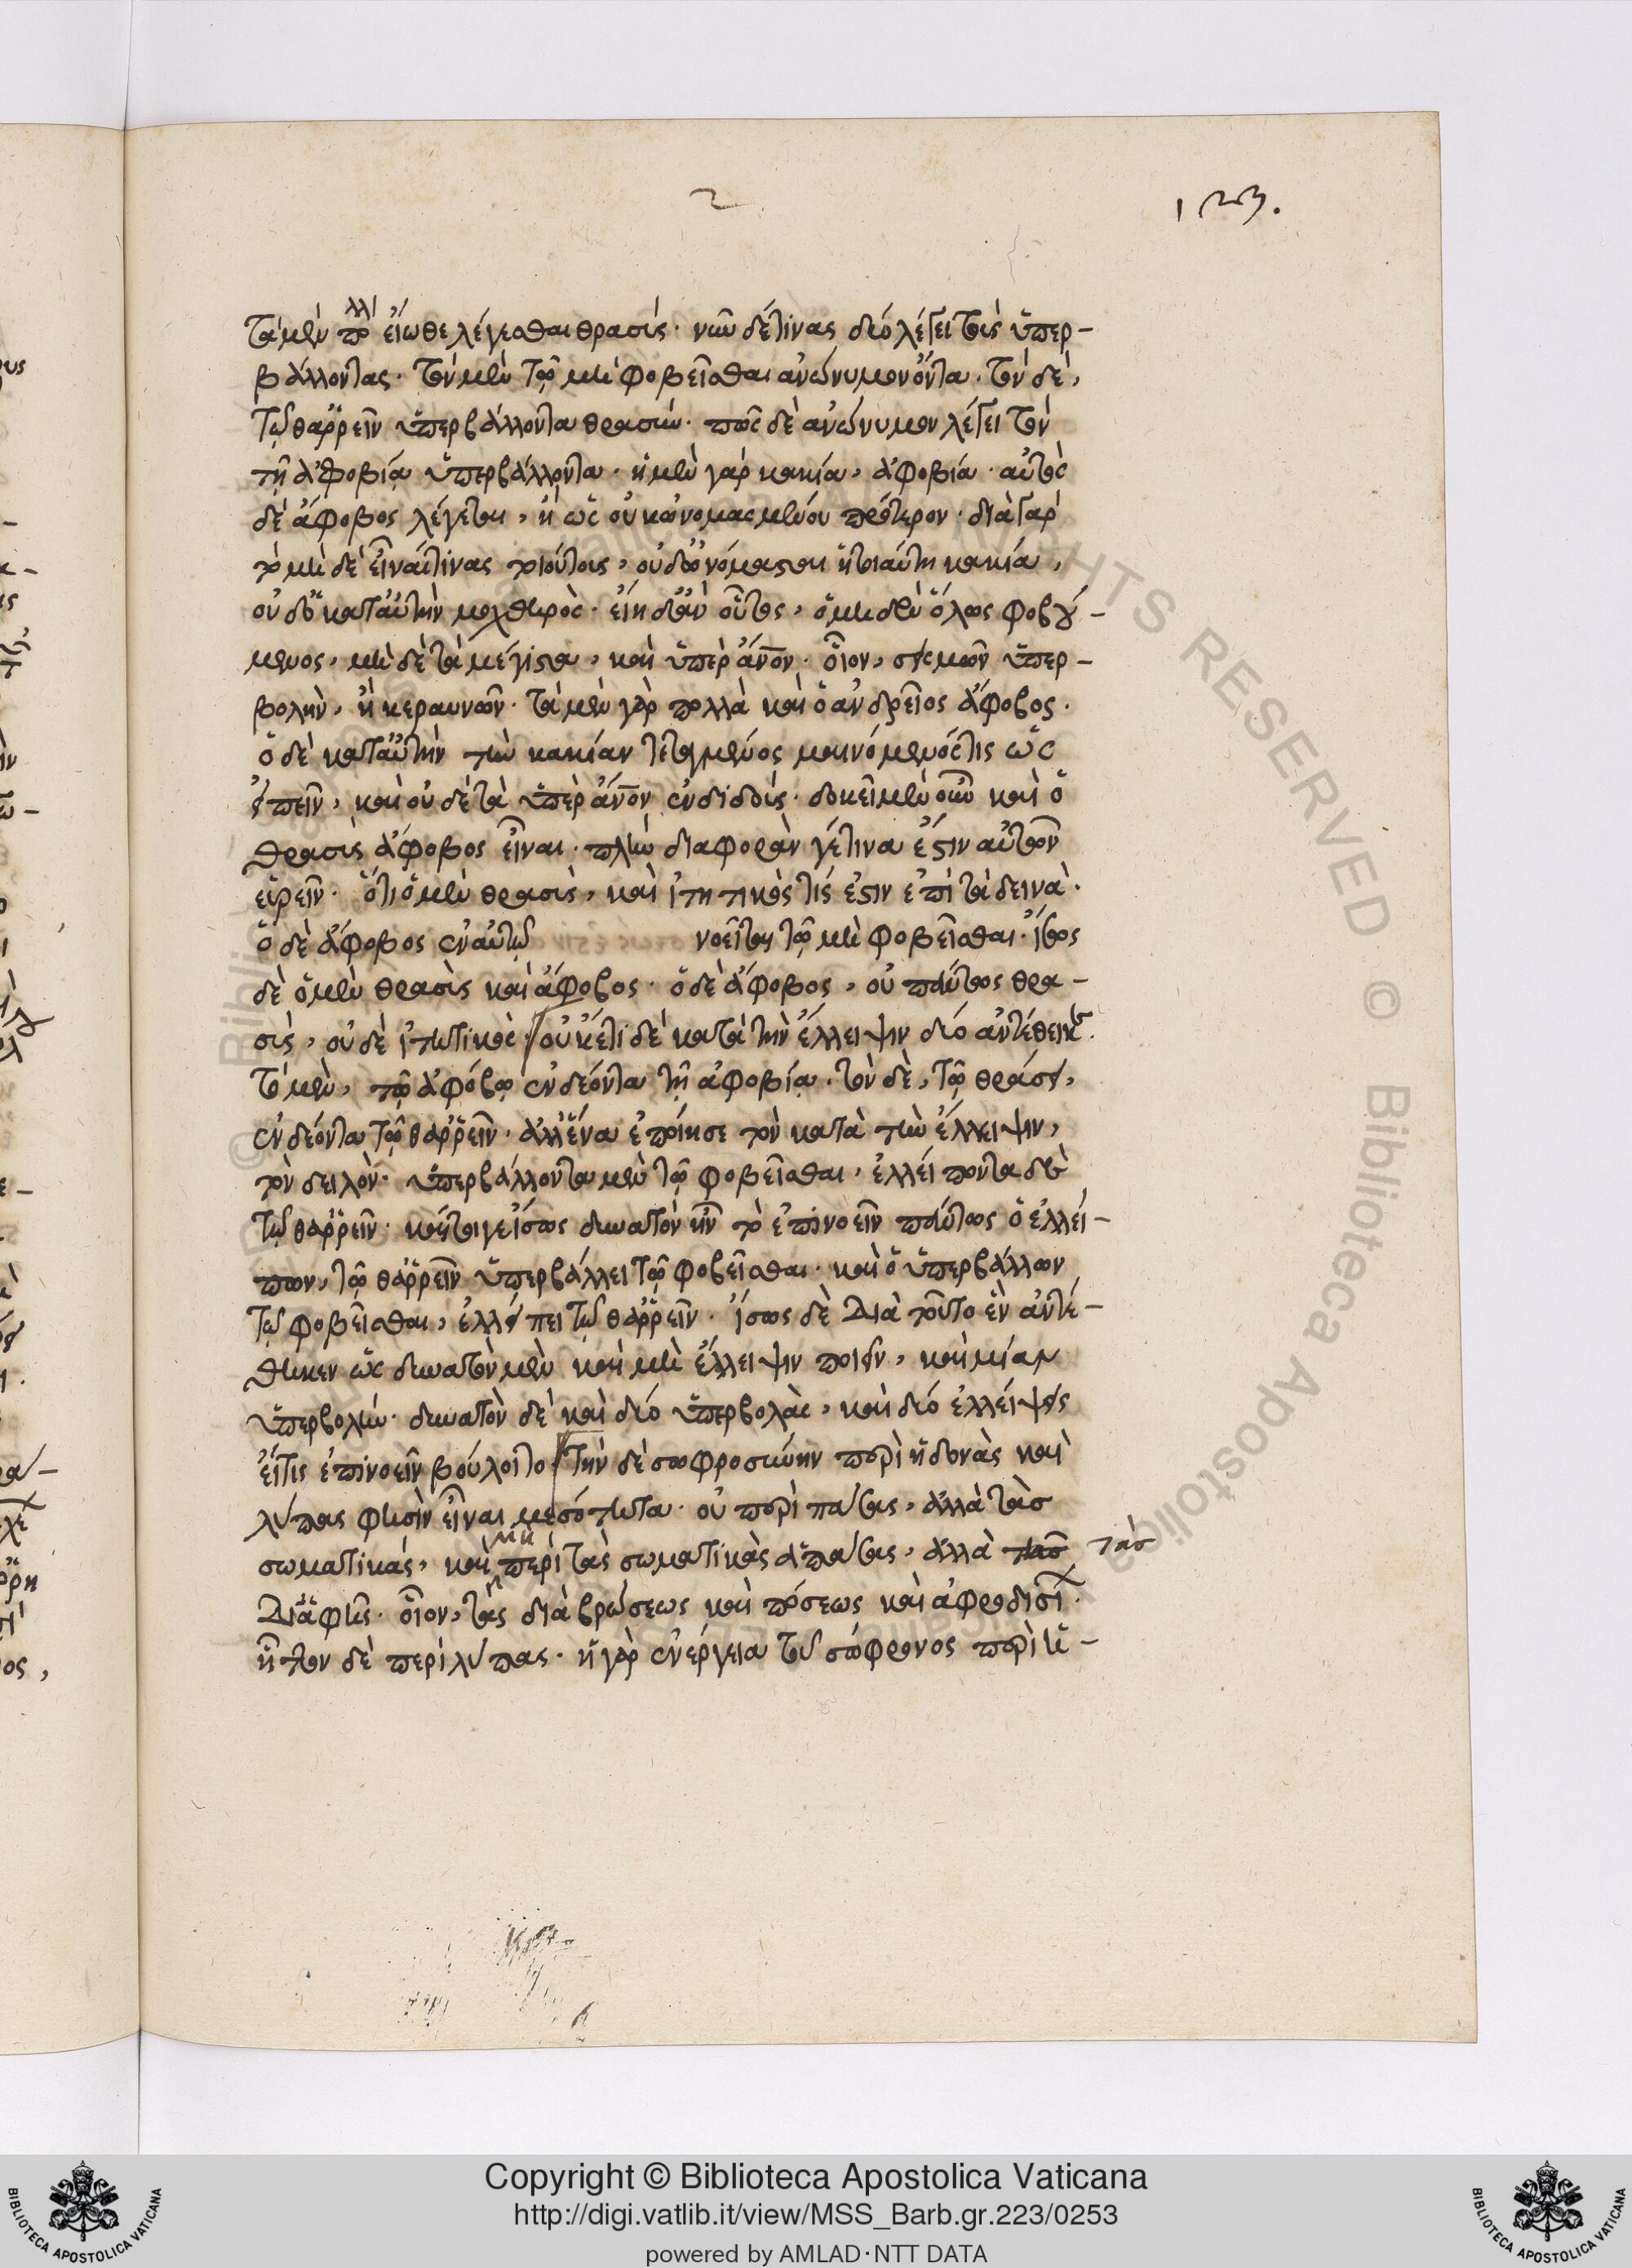 123.
τὰ μὲν πολλὰ εἴωθε λέγεσθαι θρασύς· νῦν δέ τινας δύο λέγει τοὺς ὑπερ-
βάλλοντας· τὸν μὲν τῷ μὴ φοβεῖσθαι ἀνώνυμον ὄντα· τὸν δὲ,
τῷ θαῤῥεῖν ὑπερβάλλοντα θρασύν· πῶς δὲ ἀνώνυμον λέγει τὸν
τῇ ἀφοβίᾳ ὑπερβάλλοντα· ἡ μὲν γὰρ κακία, ἀφοβία· αὐτὸς
δὲ ἄφοβος λέγεται, ἢ ὡς οὐκ ὠνομασμένου πρότερον· διὰ γὰρ
τὸ μὴ δὲ εἶναί τινας τοιούτους, οὐδ' ὀνόμασται ἡ τοιαύτη κακία,
οὐδ' ὁ κατ' αὐτὴν μοχθηρός· εἴη δ' ἂν οὗτος, ὁ μηδὲν ὅλως φοβού-
μενος, μὴ δὲ τὰ μέγιστα, καὶ ὑπὲρ ἄνον· οἷον, σεισμῶν ὑπερ-
βολὴν, ἢ κεραυνῶν· τὰ μὲν γὰρ πολλὰ καὶ ὁ ἀνδρεῖος ἄφοβος·
ὁ δὲ κατ' αὐτὴν τὴν κακίαν τεταγμένος μαινόμενός τις ὡς
εἰπεῖν, καὶ οὐ δὲ τὰ ὑπὲρ ἄνον ἐνδιδούς· δοκεῖ μὲν οὖν καὶ ὁ
θρασὺς ἄφοβος εἶναι· πλὴν διαφορὰν γέ τινα ἔστιν αὐτῶν
εὑρεῖν· ὅτι ὁ μὲν θρασὺς, καὶ ἰτητικός τίς ἐστιν ἐπὶ τὰ δεινὰ·
ὁ δὲ ἄφοβος ἐν αὐτῷ νοεῖται τῷ μὴ φοβεῖσθαι· ἴσως
δὲ ὁ μὲν θρασὺς καὶ ἄφοβος· ὁ δὲ ἄφοβος, οὐ πάντως θρα-
σύς, οὐδὲ ἰτητικὸς· οὐκέτι δὲ κατὰ τὴν ἔλλειψιν δύο ἀντέθεικε·
τὸ μὲν, τῷ ἀφόβῳ ἐνδέοντα τῇ ἀφοβίᾳ· τὸν δὲ, τῷ θράσει,
ἐνδέοντα τῷ θαῤῥεῖν· ἀλλ' ἕνα ἐποίησε τὸν κατὰ τὴν ἔλλειψιν,
τὸν δειλόν· ὑπερβάλλοντα μὲν τῷ φοβεῖσθαι, ἐλλείποντα δὲ
τῷ θαῤῥεῖν· καίτοιγε ἴσως δυνατὸν ἦν τὸ ἐπινοεῖν πάντως ὁ ἐλλεί-
πων, τῷ θαῤῥεῖν ὑπερβάλλει τῷ φοβεῖσθαι· καὶ ὁ ὑπερβάλλων
τῷ φοβεῖσθαι, ἐλλείπει τῷ θαῤῥεῖν· ἴσως δὲ διὰ τοῦτο ἓν ἀντέ-
θηκεν ὡς δυνατὸν μὲν καὶ μὴ ἔλλειψιν ποιεῖν, καὶ μίαν
ὑπερβολήν· δυνατὸν δὲ καὶ δύο ὑπερβολὰς, καὶ δύο ἐλλείψεις
εἴ τις ἐπινοεῖν βούλοιτο· τὴν δὲ σωφροσύνην περὶ ἡδονὰς καὶ
λύπας φησὶν εἶναι μεσότητα· οὐ περὶ πάσας, ἀλλὰ τὰσ
σωματικάς, καὶ μὴ περὶ τὰς σωματικὰς ἁπάσας, ἀλλὰ τὰσ
δι' ἁφῆς· οἷον, τὰς διὰ βρώσεως καὶ πόσεως καὶ ἀφροδισί·
ἧττον δὲ περὶ λύπας· ἡ γὰρ ἐνέργεια τοῦ σώφρονος περὶ τὰ-
Copyright © Biblioteca Apostolica Vaticana
http://digi.vatlib.it/view/MSS_Barb.gr.223/0253
powered by AMLAD·NTT DATA